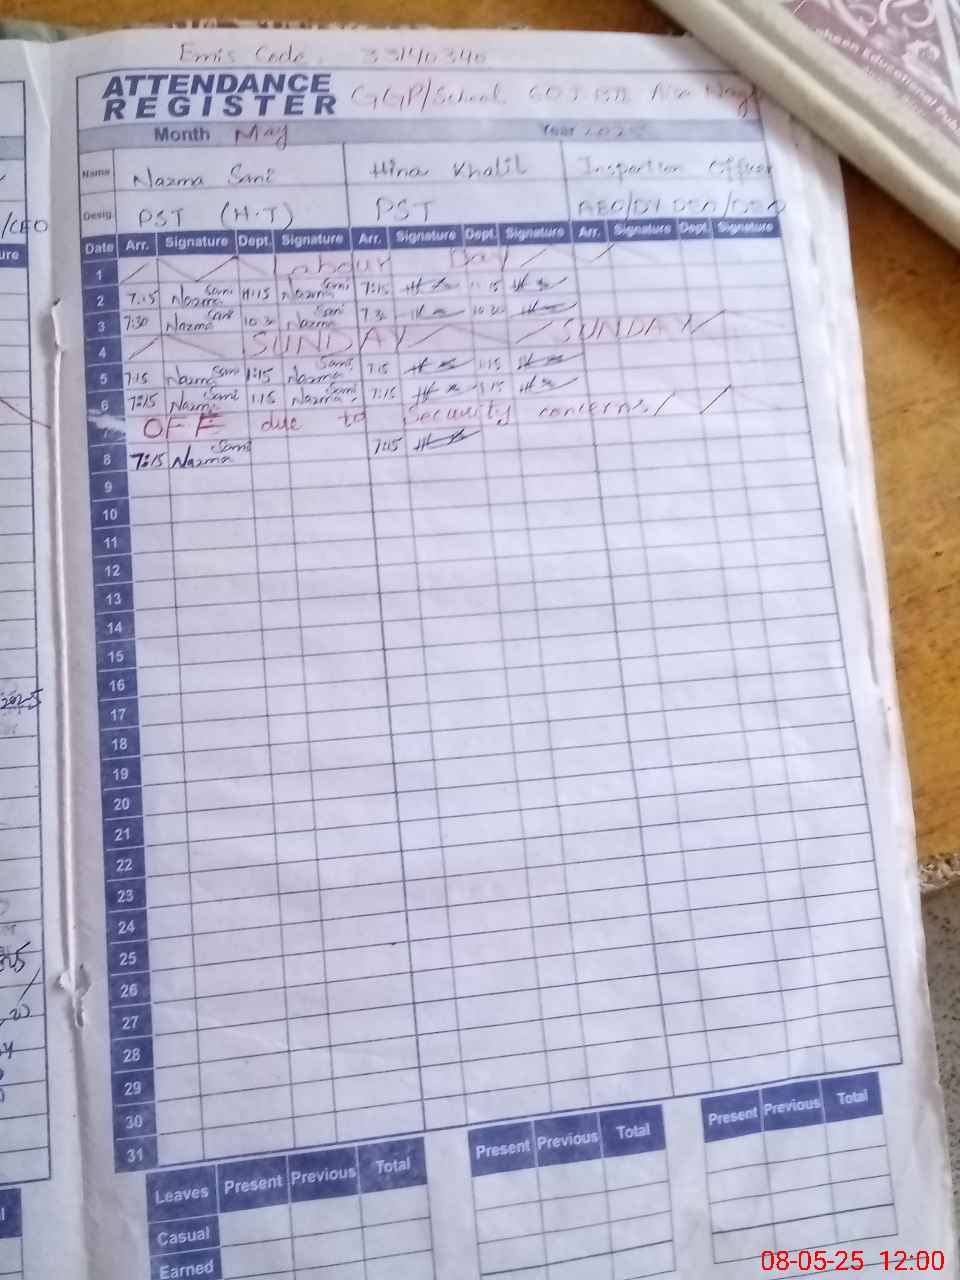 Emis Code. 33140340
ATTENDANCE REGISTER GGP/School
Month May Year 2025
Name Nazma Sani Hina Khalil Inspection Officer
Desig. PST (H.T) PST AEO/DY DEO/DEO
Date Arr. Signature Dept. Signature Arr. Signature Dept. Signature Arr. Signature Dept. Signature
1 Labour Day
2 7:15 Nazma Sani 11:15 Nazma Sani 7:15 11:15
3 7:30 Nazma Sani 10:30 Nazma Sani 7:30 10:30
4 SUNDAY SUNDAY
5 7:15 Nazma Sani 1:15 Nazma Sani 7:15 1:15
6 7:15 Nazma Sani 1:15 Nazma Sani 7:15 1:15
OFF due to Security concerns
8 7:15 Nazma Sani 7:15
9
10
11
12
13
14
15
16
17
18
19
20
21
22
23
24
25
26
27
28
29
30
31
Leaves Present Previous Total Present Previous Total Present Previous Total
Casual
Earned
/CEO
2025
Educational
08-05-25 12:00